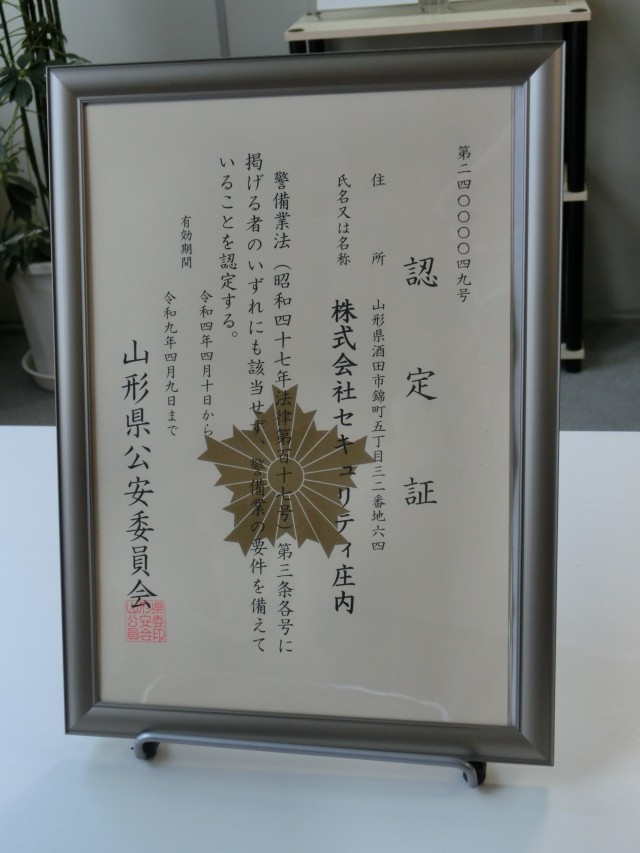 第二四〇〇〇〇四九号
認定証
住所 山形県酒田市錦町五丁目三二番地六四
氏名又は名称 株式会社セキュリティ庄内
警備業法(昭和四十七年法律第百十七号)第三条各号に
掲げる者のいずれにも該当せず、警備業の要件を備えて
いることを認定する。
有効期間 令和四年四月十日から
令和九年四月九日まで
山形県公安委員会